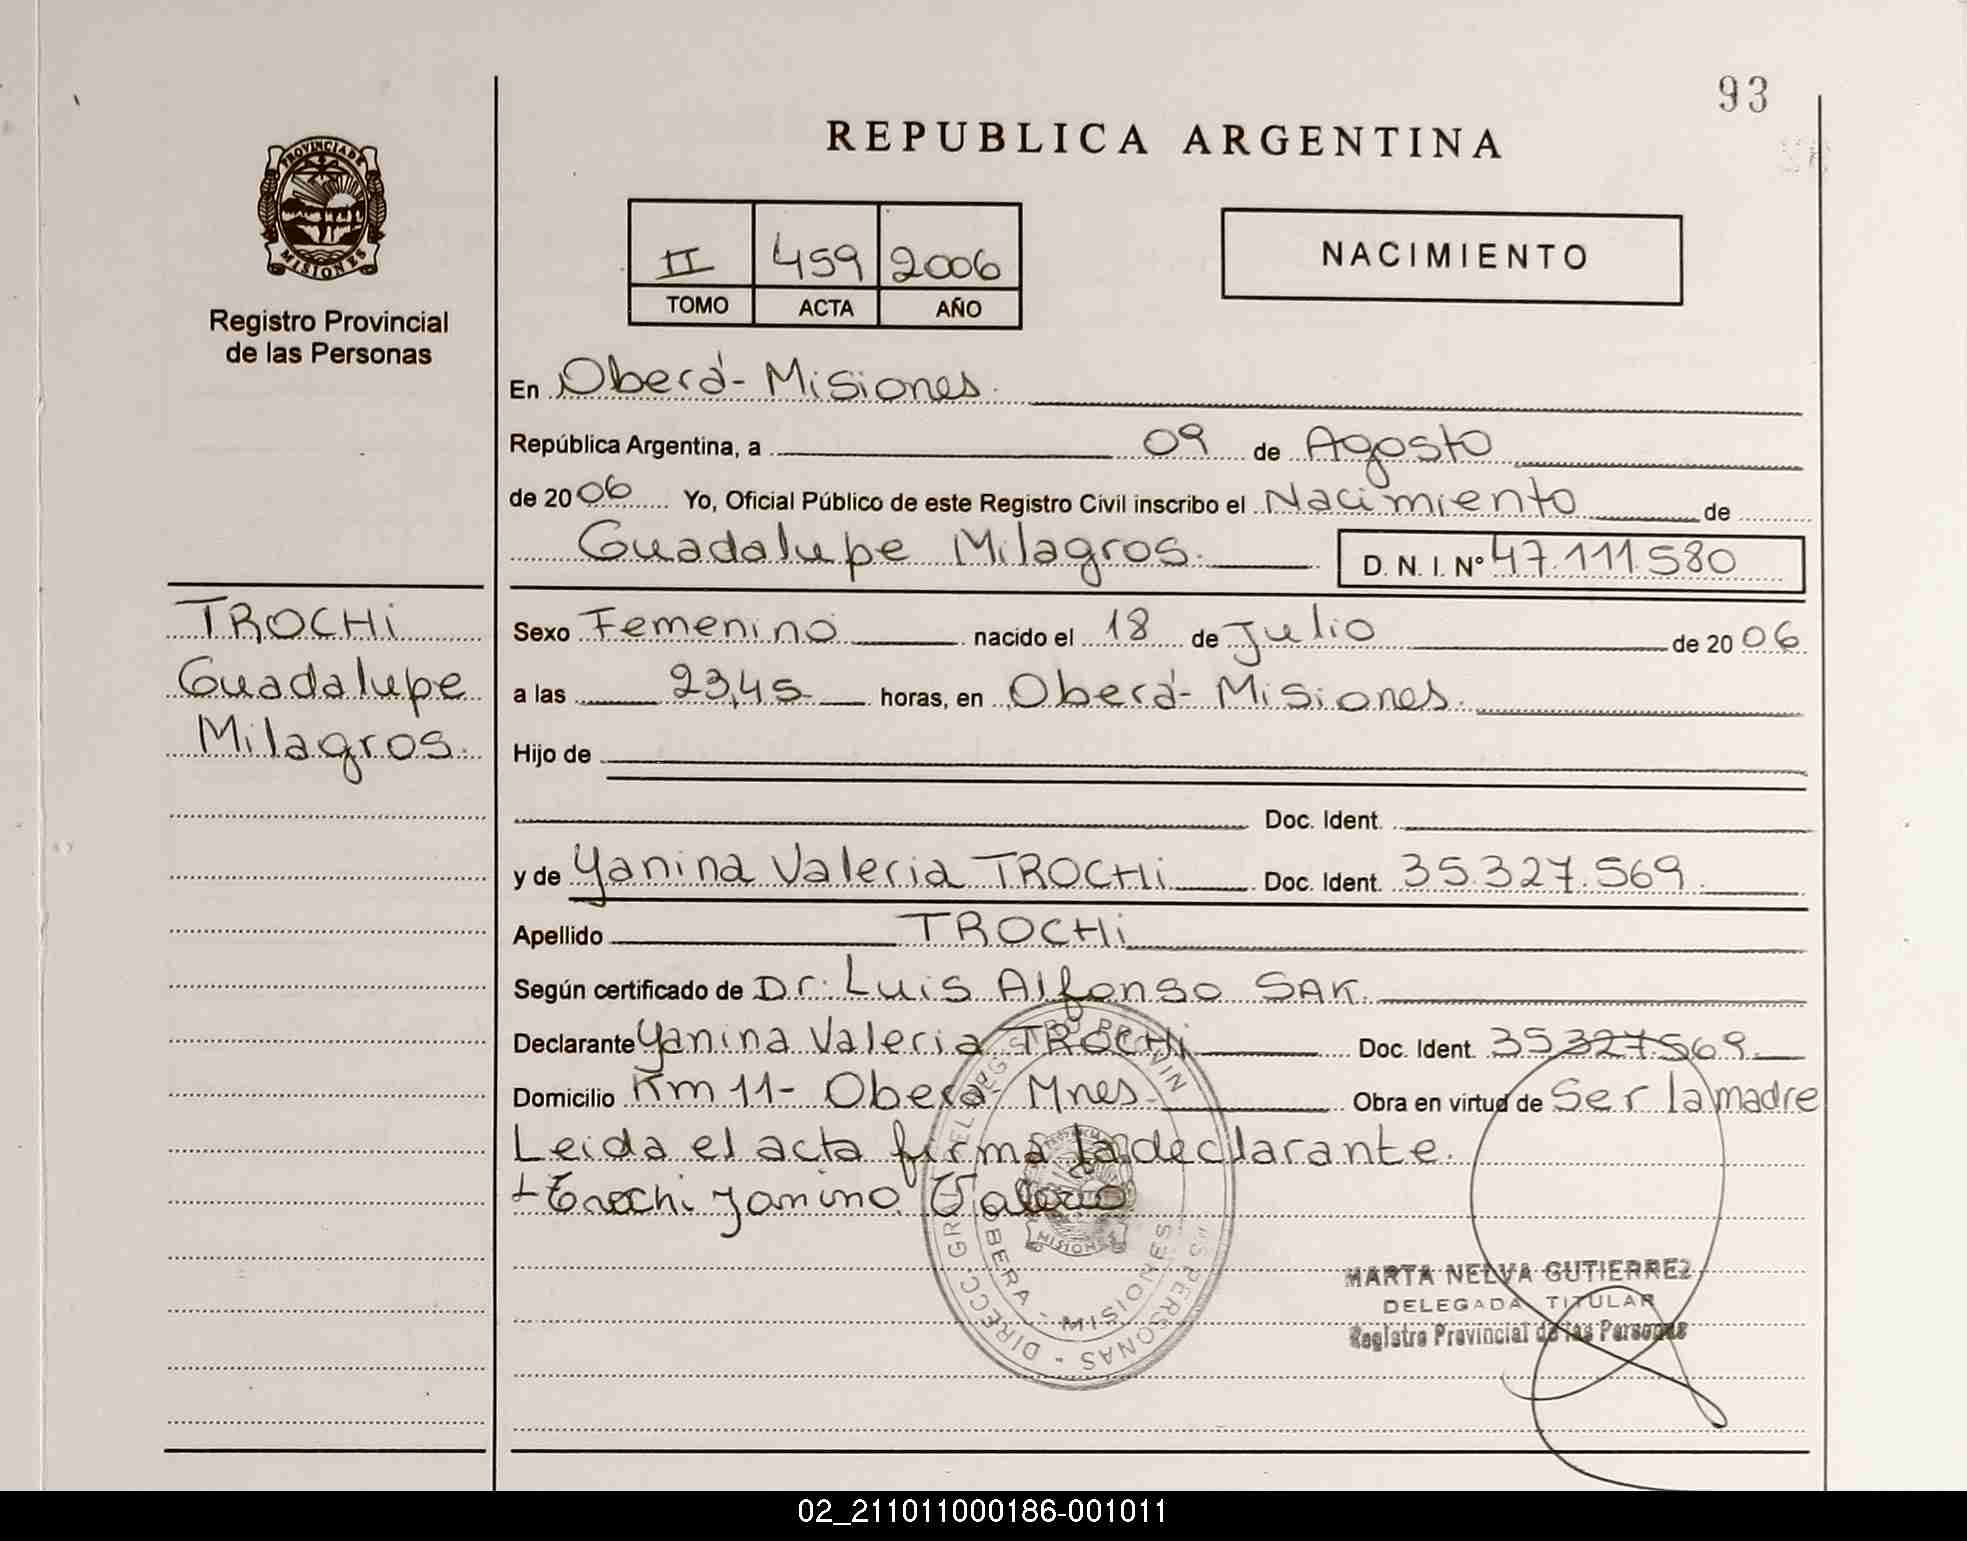 93
REPUBLICA ARGENTINA
PROVINCIA DE
MISIONES
Registro Provincial
de las Personas
II 459 2006
TOMO ACTA AÑO
NACIMIENTO
En Oberá - Misiones.
República Argentina, a 09 de Agosto
de 2006 Yo, Oficial Público de este Registro Civil inscribo el Nacimiento de
Guadalupe Milagros. D. N. I. Nº 47.111.580
TROCHi
Guadalupe
Milagros.
Sexo Femenino nacido el 18 de Julio de 2006
a las 23,45 horas, en Oberá - Misiones.
Hijo de
Doc. Ident.
y de Yanina Valeria TROCHi Doc. Ident. 35.327.569.
Apellido TROCHi
Según certificado de Dr. Luis Alfonso SAK.
Declarante Yanina Valeria TROCHi Doc. Ident. 35327569.
Domicilio Km 11 - Oberá - Mnes. Obra en virtud de Ser la madre
Leida el acta firma la declarante.
Trochi Yanina Valeria
MISIONES
OBERA - MISIONES
MARTA NELVA GUTIERREZ
DELEGADA TITULAR
Registro Provincial de las Personas
02_211011000186-001011